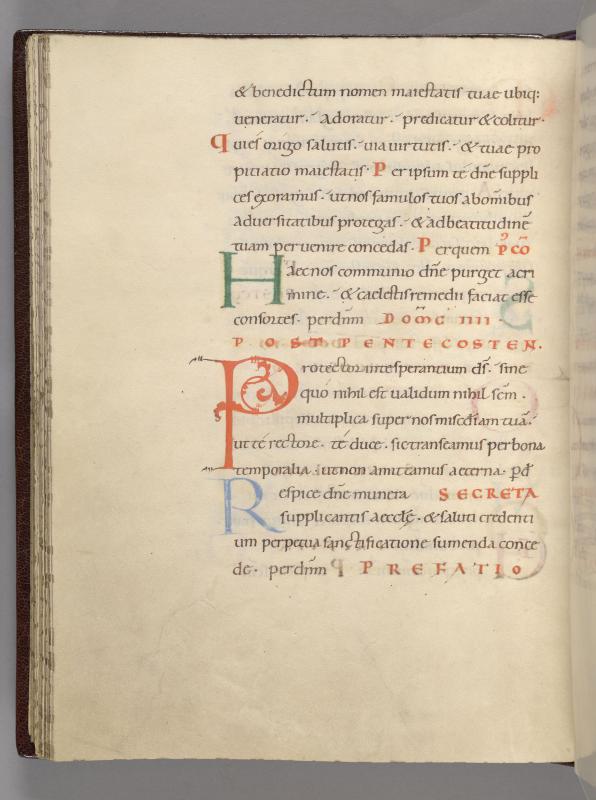 & benedictum nomen maiestatis tuae ubiq:
veneratur. Adoratur. predicatur & colitur.
qui es origo salutis. via virtutis. & tuae pro
pitiatio maiestatis. Per ipsum té dñe suppli
ces exoramus. ut nos famulos tuos ab omibus
adversitatibus protegas. & ad beatitudinē
tuam pervenire concedas. Per quem PꝰCŌ
Haec nos communio dñe purget a cri
mine. & caelestis remedii faciat esse
consortes. per dñm DOM̄C IIII
POST PENTECOSTEN.
Protector in te sperantium ds̄. sine
quo nihil est validum nihil sc̄m.
multiplica super nos misc̄diam tuā.
ut té rectore. té duce. sic transeamus per bona
temporalia. ut non amittamus aeterna. p̄ d̄
Respice dñe munera SECRETA
supplicantis aecclę. & saluti credenti
um perpetua sanctificatione sumenda conce
de. per dñm q PREFATIO